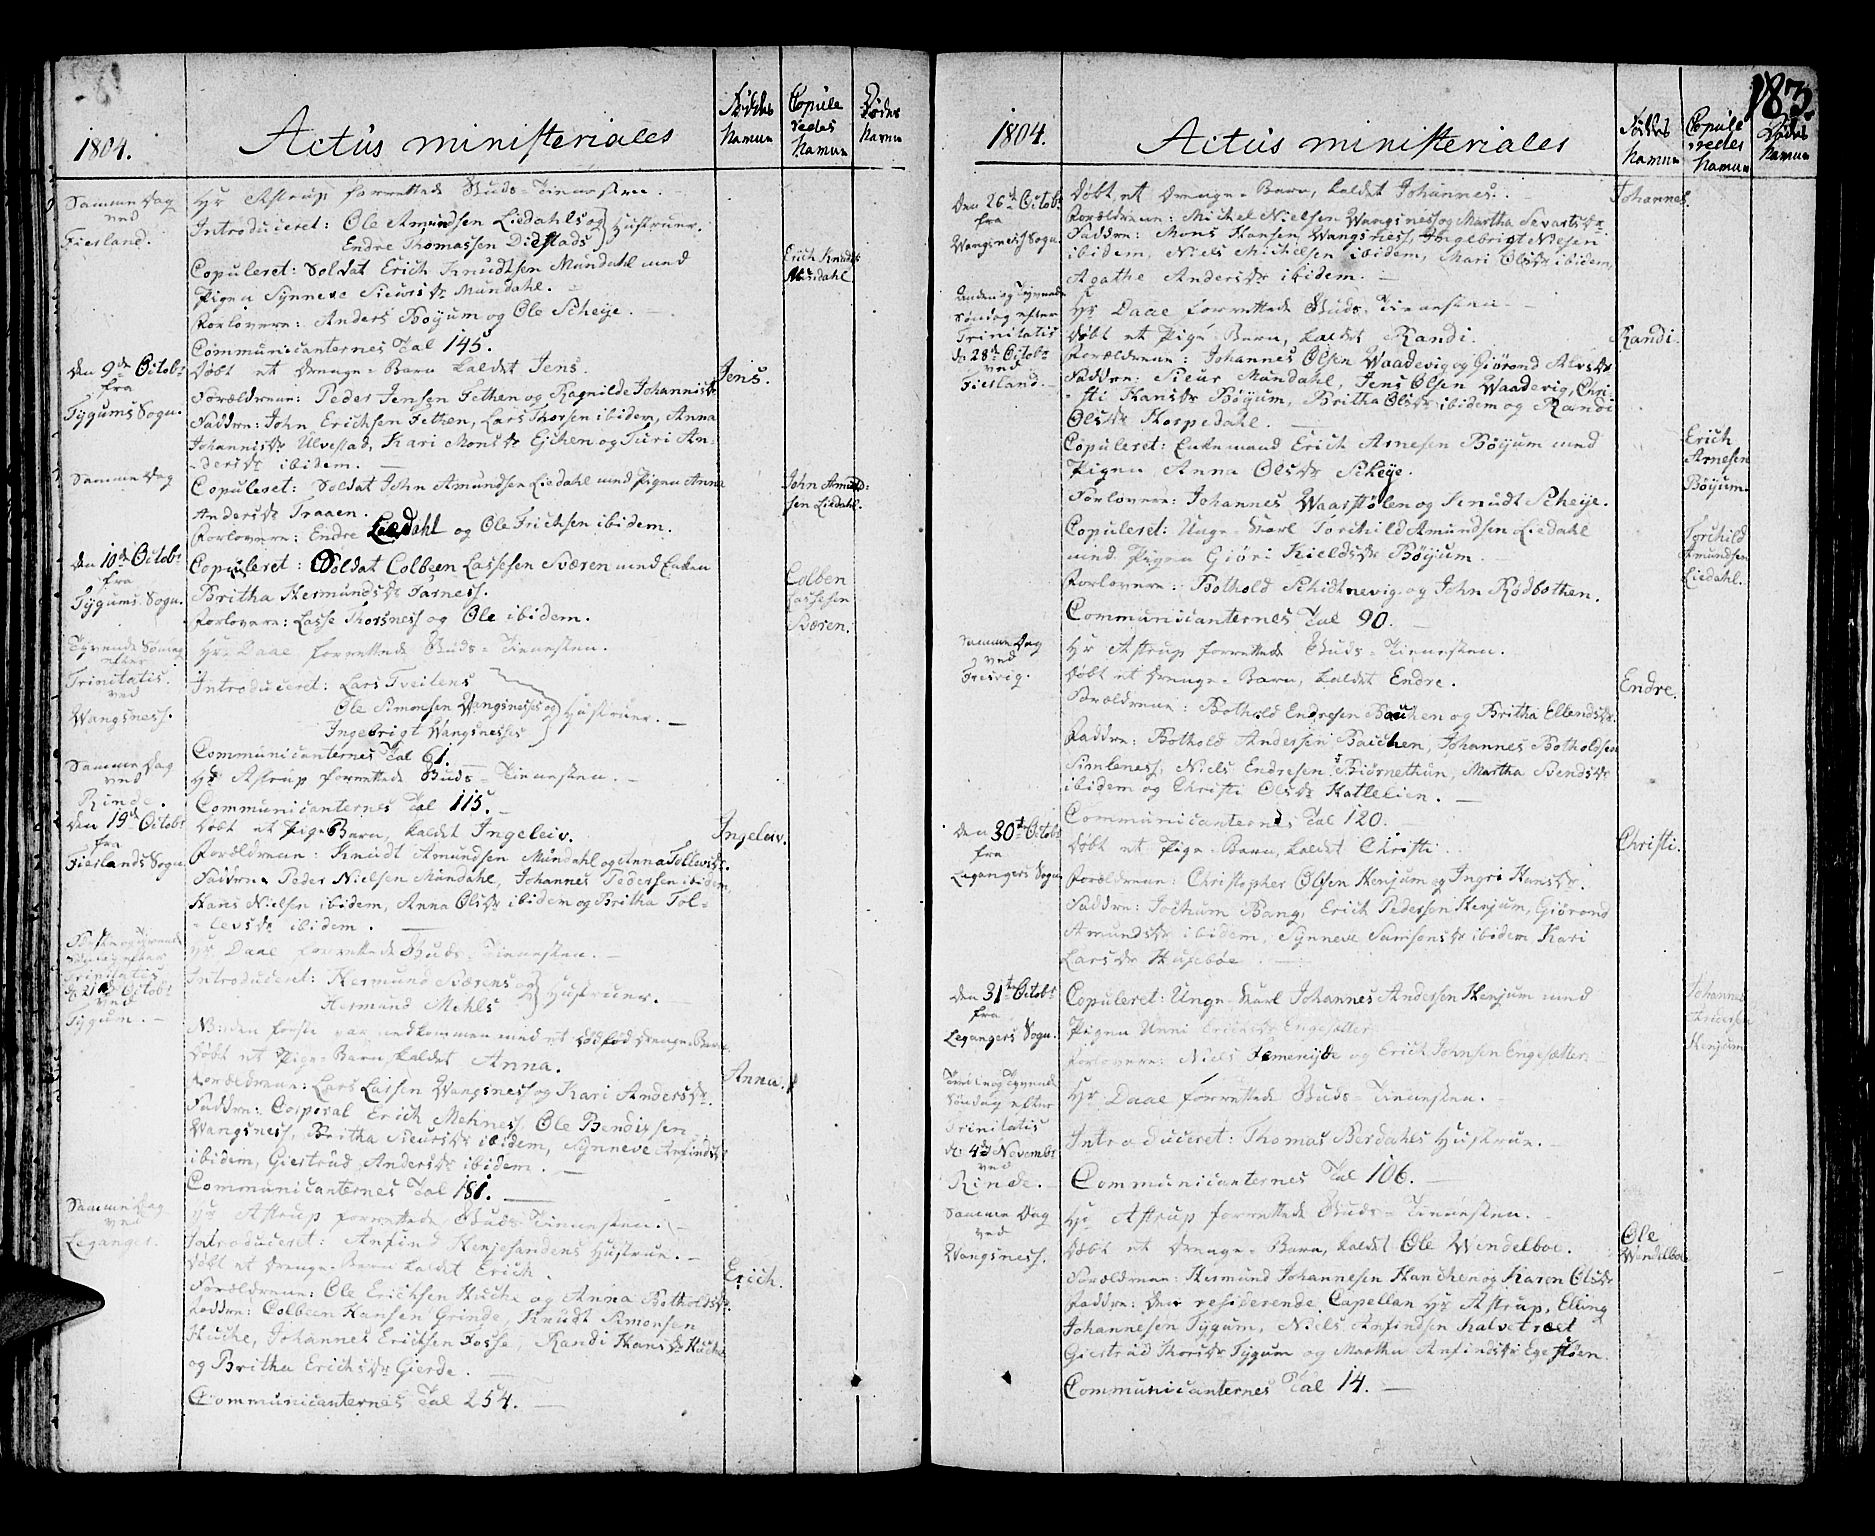 1804.
Actus ministeriales
Fødtes Namne
Copuleredes Namne
Dødes Namne
Samme Dag
ved
Fierland.
Hr Astrup forrettede Guds-Tienesten. —
Introduceret: Ole Amundsen Liedahls og
Endre Thomassen Distads
Hustruer.
Copuleret: Soldat Erich Knudtsen Mundahl med
Pigen Synneve Siursdr Mundahl. —
Erich Knudts
Mundahl
Forlovere: Anders Bøyum og Ole Scheye. —
Communicanternes Tal 145.
den 9de Octobr
fra
Tygums Sogn.
Døbt et Drenge-Barn kaldet Jens.
Jens.
Forældrene: Peder Jensen Fethen og Ragnilde Johannisdr
Faddre: John Erichsen Fethen, Lars Thorsen ibidem, Anna
Johannisdr Ulvestad, Kari Monsdr Ejchen og Turi An-
-dersdr ibidem. —
Samme Dag
Copuleret: Soldat John Amundsen Liedahl med Pigen Anna
Andersdr Traaen.
John Amund-
sen Liedahl.
Forlovere: Endre Liedahl og Ole Erichsen ibidem.
den 10de Octobr
fra
Tygums Sogn.
Copuleret: Soldat Colbeen Lassesen Sværen med Enken
Britha Hermundsdr Farness.
Forlovere: Lasse Thorsness og Ole ibidem.
Colben
Lassesen
Sværen.
Tyvende Søndag
efter
Trinitatis.
ved
Wangsness.
Hr Daae forrettede Guds-Tienesten.
Introduceret: Lars Tveitens
Ole Simonsen Wangsnesses og
Ingebrigt Wangsnesses
Hustruer. —
Communicanternes Tal 61. —
Samme Dag
ved
Rinde.
Hr Astrup forrettede Guds-Tienesten. —
Communicanternes Tal 115. —
den 19de Octobr
fra
Fierlands Sogn.
Døbt et Pige Barn, kaldet Ingeleiv.
Ingeleiv.
Forældrene: Knudt Amundsen Mundahl og Anna Tollevsdr.
Faddre: Peder Nielsen Mundahl, Johannes Pedersen ibidem,
Hans Nielsen ibidem, Anna Olisdr ibidem og Britha Tol-
-levsdr ibidem. —
Første og Tyvende
Søndag efter
Trinitatis
d: 21de Octobr
ved
Tygum. —
Hr Daae forrettede Guds-Tienesten. —
Introduceret: Hermund Sværens og
Hermund Mehls
Hustruer. —
NB: den første var nedkommen med et dødfød Drenge-Barn.
Døbt et Pige-Barn kaldet Anna.
Anna.
Forældrene: Lars Larsen Wangsness og Kari Andersdr.
Faddre: Corporal Erich Mehness, Ole Bendixsen
Wangsness, Britha Siursdr ibidem, Synneve Anfindsdr
ibidem, Giertrud Andersdr ibidem. —
Communicanternes Tal 181. —
Samme Dag
ved
Leganger.
Hr Astrup forrettede Guds-Tienesten. —
Introduceret: Anfind Henjesandens Hustrue. —
Døbt et Drenge-Barn kaldet Erich.
Erich.
Forældrene: Ole Erichsen Huche og Anna Botholdsdr.
Faddre: Colbeen Hansen Grinde, Knudt Simonsen
Huche, Johannes Erichsen Fosse, Randi Hansdr Huche
og Britha Erichsdr Gierde. —
Communicanternes Tal 254. —
183.
1804.
Actus ministeriales
Fødtes Namne
Copuleredes Namne
Dødes Namne
Den 26de Octobr
fra
Wangsness Sogn.
Døbt et Drenge-Barn, kaldet Johannes. —
Johannes.
Forældrene: Michel Nielsen Wangsness og Martha Sevartsdr
Faddre: Mons Hansen Wangsness, Ingebrigt Nielsen
ibidem, Niels Michelsen ibidem, Mari Olisdr ibidem,
Agathe Andersdr ibidem. —
Anden og Tyvende
Søndag efter
Trinitatis
d: 28de Octobr
ved
Fierland. —
Hr Daae forrettede Guds-Tienesten. —
Døbt et Pige-Barn, kaldet Randi.
Randi.
Forældrene: Johannes Olsen Waadevig og Giørond Alvsdr
Faddre: Siur Mundahl, Jens Olsen Waadevig, Chri-
-sti Hansdr Bøyum, Britha Olsdr ibidem og Randi
Olsdr Thorpedahl. —
Copuleret: Enkemand Erich Arnesen Bøyum med
Pigen Anna Olsdr Scheye.
Erich
Arnesen
Bøyum.
Forlovere: Johannes Waarstølen og Knudt Scheye.
Copuleret: Unge-Karl Torchild Amundsen Liedahl
med Pigen Giøri Kieldsdr Bøyum.
Torchild
Amundsen
Liedahl.
Forlovere: Bothold Schidtnevig og John Rødbothen.
Communicanternes Tal 90. —
Samme Dag
ved
Fresvig.
Hr Astrup forrettede Guds-Tienesten.
Døbt et Drenge-Barn, kaldet Endre.
Endre.
Forældrene: Bothold Endresen Bauchen og Britha Ellendsdr.
Faddre: Bothold Andersen Bauchen, Johannes Botholdsen
Simleness, Niels Endresen Biørnethun, Martha Svendsdr
ibidem og Christi Olsdr Hatlelien. —
Communicanternes Tal 120. —
den 30te Octobr
fra
Legangers Sogn
Døbt et Pige-Barn, kaldet Christi.
Christi.
Forældrene: Christopher Olsen Henjum og Ingri Hansdr.
Faddre: Jochum Bang, Erich Pedersen Henjum, Giørond
Amundsdr ibidem, Synneve Samsonsdr ibidem, Kari
Larsdr Husebøe. —
den 31te Octobr
fra
Legangers Sogn.
Copuleret: Unge-Karl Johannes Andersen Henjum med
Pigen Unni Erichsdr Engesætter.
Johannes
Andersen
Henjum
Forlovere: Niels og Erich Johnsen Engesætter. —
og Tyvende
Søndag efter
Trinitatis
d: 4de Novembr
ved
Rinde. —
Hr Daae forrettede Guds-Tienesten. —
Introduceret: Thomas Berdahls Hustrue. —
Communicanternes Tal 106. —
Samme Dag
ved
Wangsness.
Hr Astrup forrettede Guds-Tienesten. —
Døbt et Drenge-Barn, kaldet Ole Wendelboe.
Ole
Wendelboe
Forældrene: Hermund Johannesen Hanchen og Karen Olsdr
Faddre: den residerende Capellan Hr Astrup, Elling
Johannesen Tygum, Niels Anfindsen Halvetræt
Giertrud Thorsdr Tygum og Martha Anfindsdr Egestøen.
Communicanternes Tal 14. —